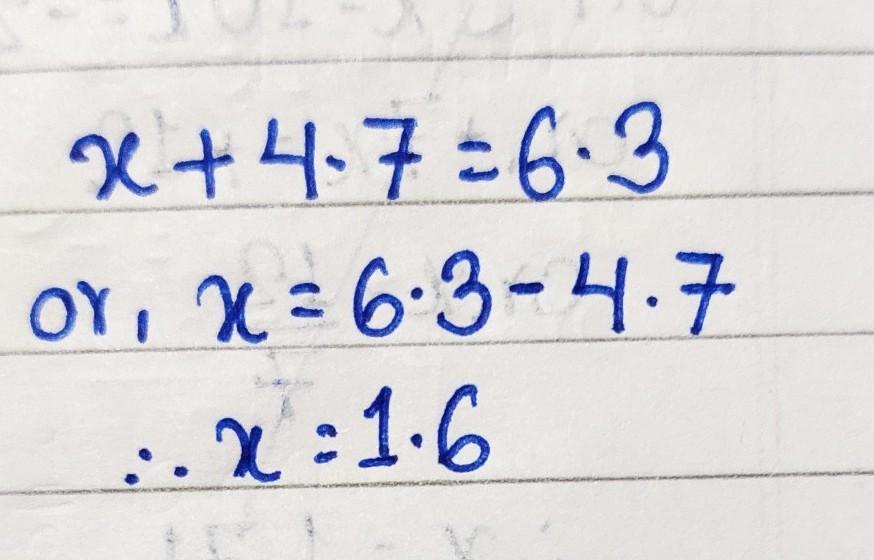 x + 4.7 = 6.3
or, x = 6.3 - 4.7
∴ x = 1.6